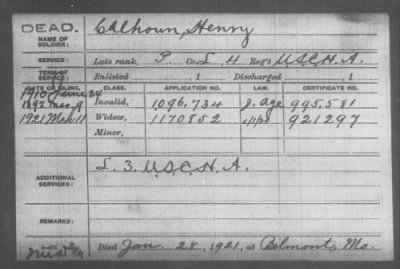 DEAD.
NAME OF SOLDIER: Calhoun, Henry
SERVICE: Late rank, P. Co. L, 4 Reg't U.S.C.H.A.
TERM OF SERVICE: Enlisted , 1 Discharged , 1
DATE OF FILING. CLASS. APPLICATION NO. LAW. CERTIFICATE NO.
1892 Invalid, 1,096,734 J. Age 995,581
1921 Mch 11 Widow, 1170852 921297
Minor,
ADDITIONAL SERVICES: L. 3. U.S.C.H.A.
REMARKS:
Died Jan. 28, 1921, at Belmont, Mo.